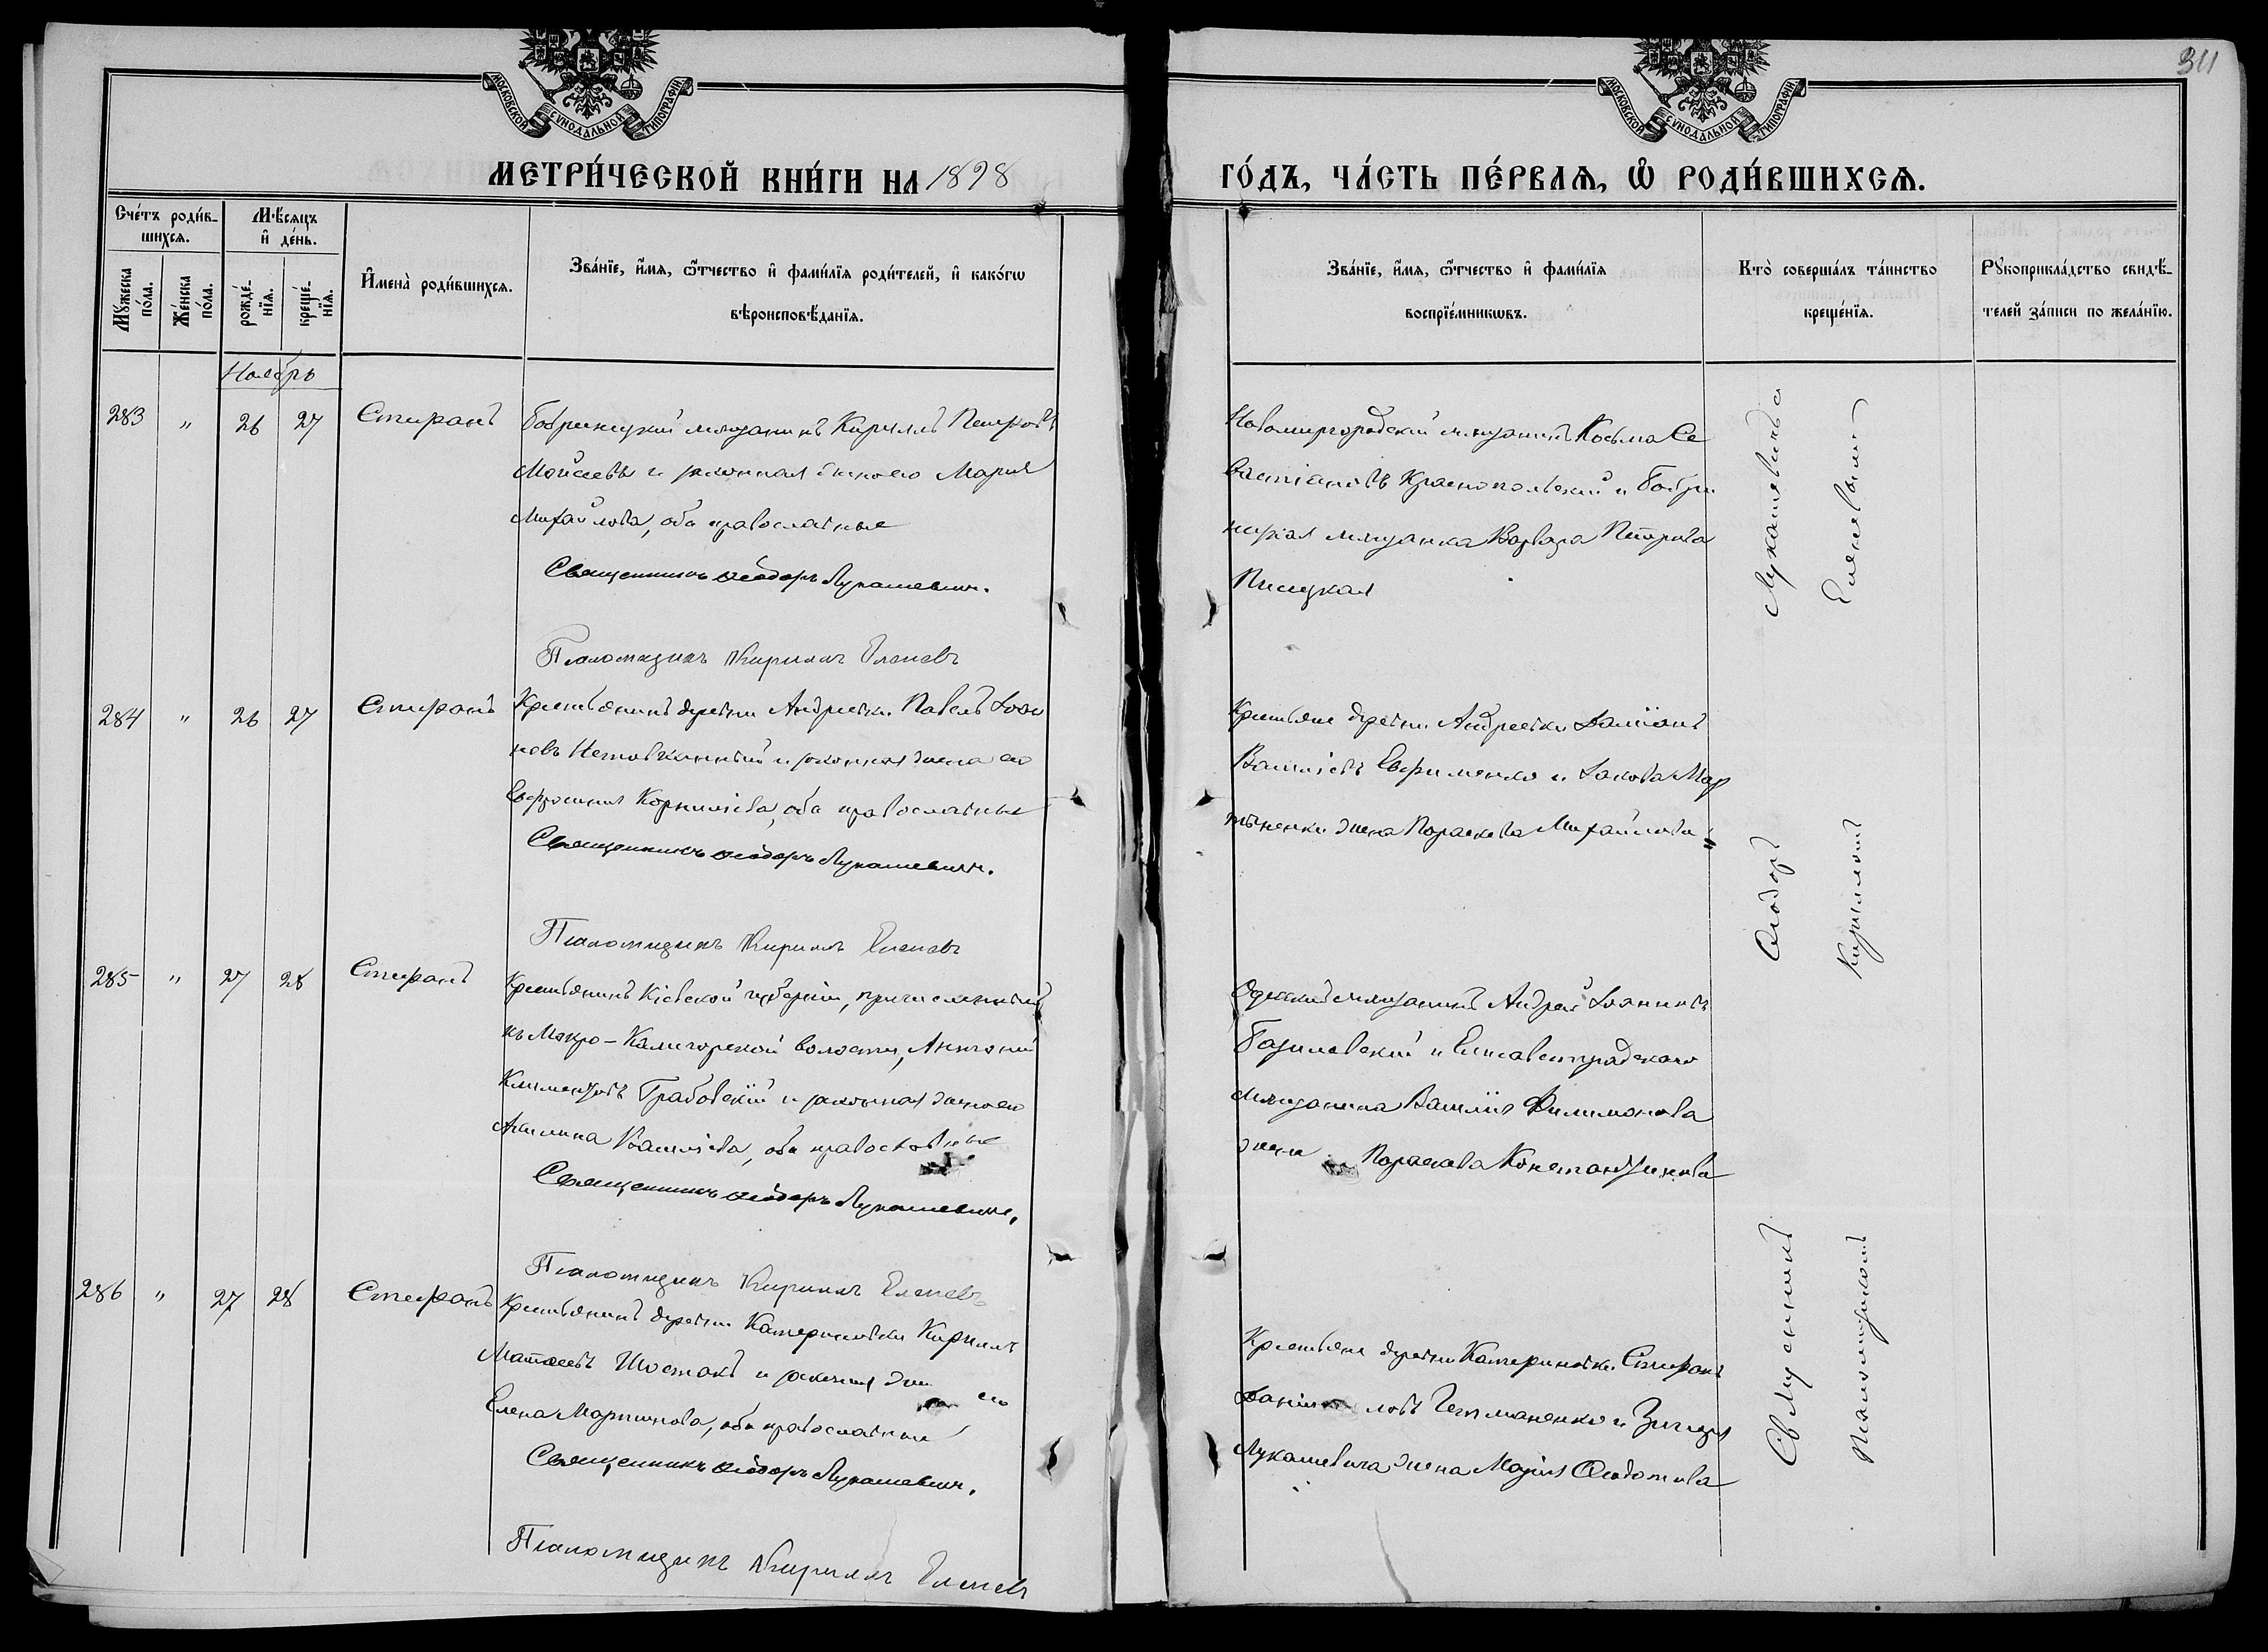 311
МОСКОВСКОЙ СѴНОДАЛЬНОЙ ТИПОГРАФІИ.
МОСКОВСКОЙ СѴНОДАЛЬНОЙ ТИПОГРАФІИ.
МЕТРИ́ЧЕСКОЙ КНИ́ГИ НА 1898
ГО́ДЪ, ЧА́СТЬ ПЕ́РВАѦ, Ѡ РОДИ́ВШИХСѦ.
Сче́тъ роди́в-
шихсѧ.
Мѣ́сяцъ
и҆ де́нь.
Мꙋ́жеска
по́ла.
Же́нска
по́ла.
рожде́-
нїѧ.
креще́-
нїѧ.
И҆мена̀ роди́вшихсѧ.
Зва́нїе, и҆́мѧ, ѻ҆́тчество и҆ фами́лїѧ роди́телей, и҆ како́гѡ
вѣроисповѣ́данїѧ.
Зва́нїе, и҆́мѧ, ѻ҆́тчество и҆ фами́лїѧ
воспрїе́мникѡвъ.
Кто̀ соверша́лъ та́инство
креще́нїѧ.
Рꙋкоприкла́дство свидѣ́-
телей за́писи по жела́нїю.
Ноябрь
283 " 26 27 Стефанъ
Бобринецкій мѣщанинъ Кириллъ Петровъ
Моисеевъ и законная жена его Марія
Михайлова, оба православные
Священникъ Ѳеодоръ Лукашевичъ.
Псаломщикъ Кириллъ Еленевъ
Новомиргородскій мѣщанинъ Косьма Се
вастіановъ Краснопольскій и Бобри
нецкая мѣщанка Варвара Петрова
284 " 26 27 Стефанъ
Крестьянинъ деревни Андреевки Павелъ Іоан
новъ и законная жена его
Евфросинія Корниліева, оба православные
Священникъ Ѳеодоръ Лукашевичъ.
Псаломщикъ Кириллъ Еленевъ
Крестьяне деревни Андреевки Даміанъ
Василіевъ Ефименко и Іакова Мар
тыненки жена Параскева Михайлова "
285 " 27 28 Стефанъ
Крестьянинъ Кіевской губерніи, причисленный
къ Мокро-Калигорской волости, Антоній
Климентовъ Грабовскій и законная жена его
Акилина Василіева, оба православные
Священникъ Ѳеодоръ Лукашевичъ.
Псаломщикъ Кириллъ Еленевъ
Одесскій мѣщанинъ Андрей Іоанновъ
Базилевскій и Елисаветградскаго
мѣщанина Василія Филимонова
жена Параскева Константинова
286 " 27 28 Стефанъ
Крестьянинъ деревни Катериновки Кириллъ
Матѳеевъ Шостакъ и законная жена его
Елена Мартинова, оба православные
Священникъ Ѳеодоръ Лукашевичъ.
Псаломщикъ Кириллъ Еленевъ
Крестьяне деревни Катериновки Стефанъ
Даніиловъ Гетманенко и
Лукашевича жена Марія Ѳеодотова
Священникъ Ѳеодоръ Лукашевичъ с
Псаломщикомъ Кирилломъ Еленевымъ